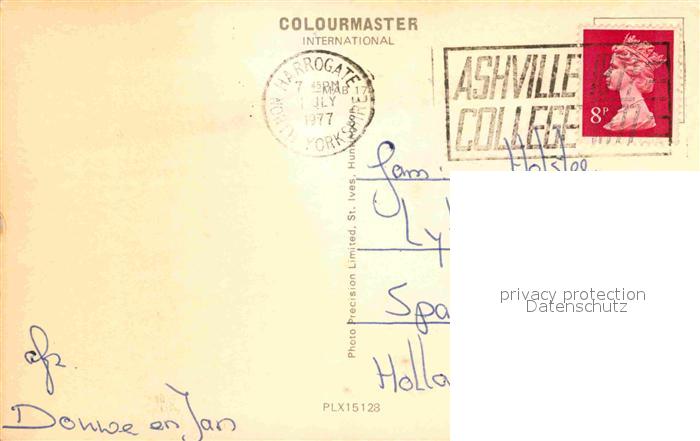 COLOURMASTER
INTERNATIONAL
HARROGATE
7 45PM
MAB 17
JLY
1977
YORKSHIRE
ASHVILLE
COLLEGE
8P
Fam.
Holstee
Ly
Spa
Holla
privacy protection
Datenschutz
Photo Precision Limited, St. Ives, Hun
afz
Douwe en Jan
PLX15128